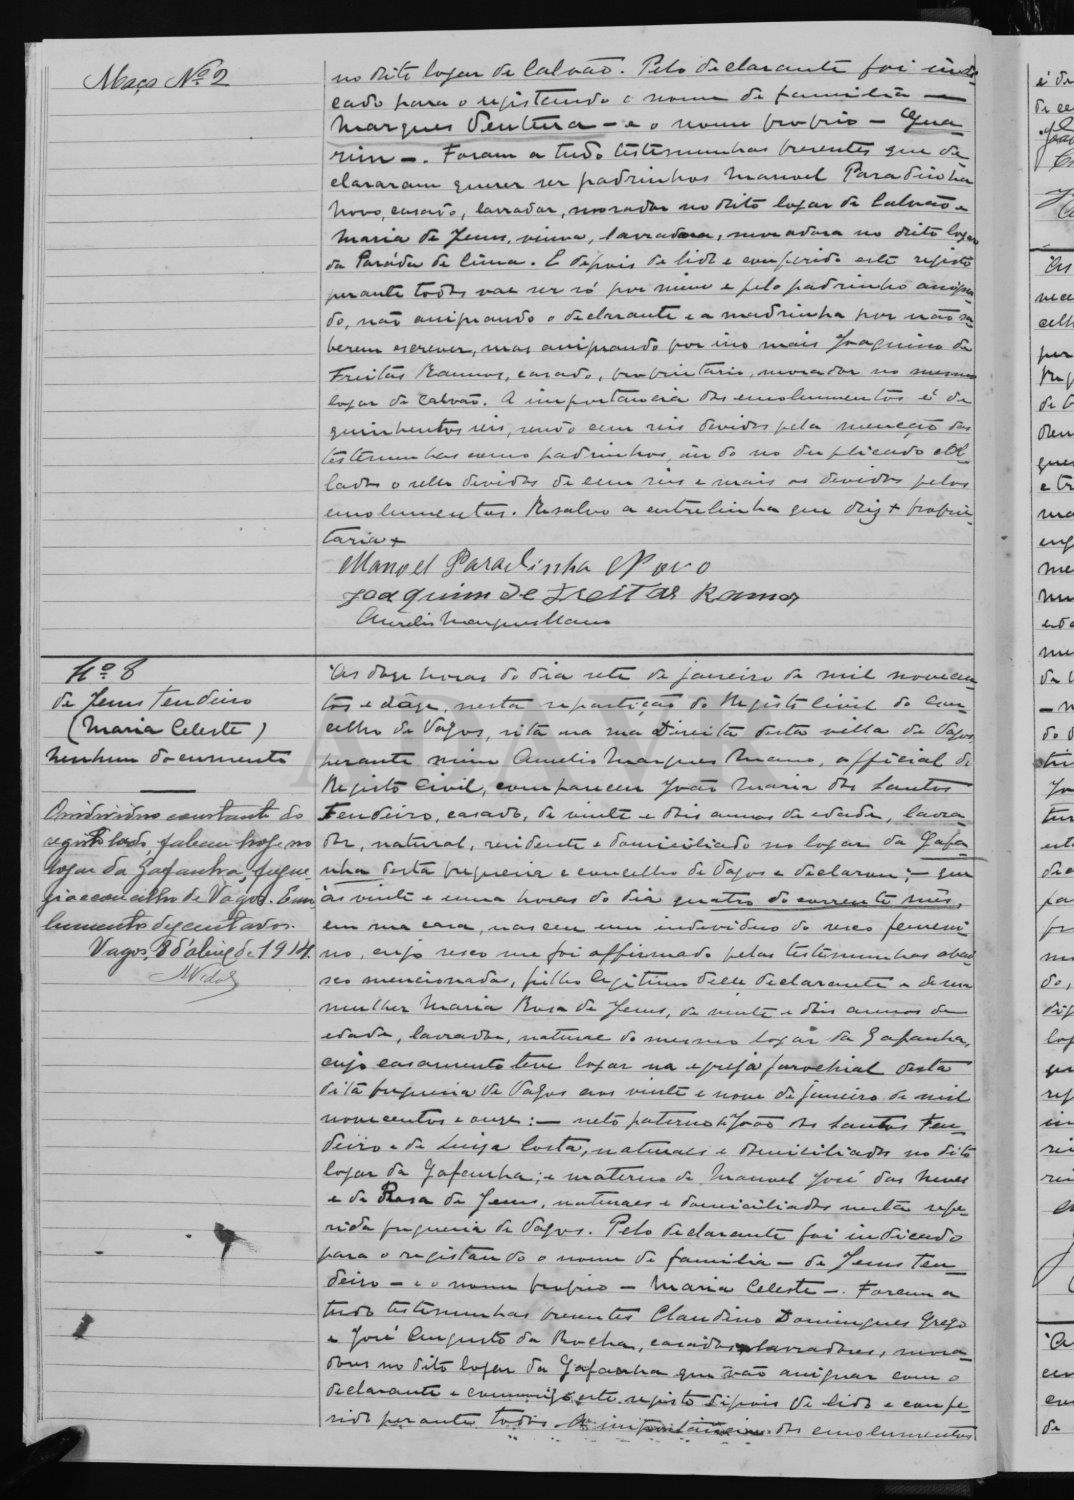 Maço Nº 2
no dito logar de Calvão. Pelo declarante foi indi-
cado para o registando o nome de familia —
Marques Ventura — e o nome proprio —
—. Foram a tudo testemunhas presentes que de-
clararam querer ser padrinhos Manoel Paradinha
Novo, casado, lavrador, morador no dito logar de Calvão e
Maria de Jesus, viuva, lavradora, moradora no dito logar
da Paráda de Cima. E depois de lido e conferido este registo
perante todos vae ser só por mim e pelo padrinho assigna-
do, não assignando o declarante e a madrinha por não sa-
berem escrever, mas assignando por isso mais Joaquim de
Freitas Ramos, casado, proprietario, morador no mesmo
logar de Calvão. A importancia dos emolumentos é de
quinhentos reis, sendo cem reis devidos pela menção das
testemunhas como padrinhos, indo no duplicado col-
lados o sello devido de cem reis e mais os devidos pelos
emolumentos. Resalvo a entrelinha que diz + proprie-
taria +
Manoel Paradinha Novo
Joaquim de Freitas Ramos
Aurelio Marques Mano
Nº 8
de Jesus Fendeiro
(Maria Celeste)
Nenhum documento
O individuo constante do
registo lado, faleceu hoje no
logar da Gafanha, fregue-
sia e concelho de Vagos. Emo-
lumentos
Vagos, 8 d'abril de 1914.
As doze horas do dia sete de janeiro de mil novecen-
tos e doze, nesta repartição do Registo Civil do Con-
celho de Vagos, sita na rua Direita desta villa de Vagos,
perante mim Aurelio Marques Mano, official do
Registo Civil, compareceu João Maria dos Santos
Fendeiro, casado, de vinte e dois annos de edade, lavra-
dor, natural, residente e domiciliado no logar da Gafa-
nha desta freguesia e concelho de Vagos e declarou: — que
ás vinte e uma horas do dia quatro do corrente mês,
em sua casa, nasceu um individuo do sexo femeni-
no, cujo sexo me foi affirmado pelas testemunhas abai-
xo mencionadas, filho legitimo delle declarante e de sua
mulher Maria Rosa de Jesus, de vinte e dois annos de
edade, lavradora, natural do mesmo logar da Gafanha,
cujo casamento teve logar na egreja parochial desta
dita freguesia de Vagos aos vinte e nove de janeiro de mil
novecentos e onze: — neto paterno de João dos Santos Fen-
deiro e de Luiza Costa, naturaes e domiciliados no dito
logar da Gafanha; e materno de Manoel José das Neves
e de Rosa de Jesus, naturaes e domiciliados nesta refe-
rida freguesia de Vagos. Pelo declarante foi indicado
para o registando o nome de familia — de Jesus Fen-
deiro — e o nome proprio — Maria Celeste —. Foram a
tudo testemunhas presentes Claudino Domingues Grego
e José Augusto da Rocha, casados, lavradores, mora-
dores no dito logar da Gafanha que vão assignar com o
declarante e commigo este registo depois de lido e confe-
rido perante todos. A importancia dos emolumentos